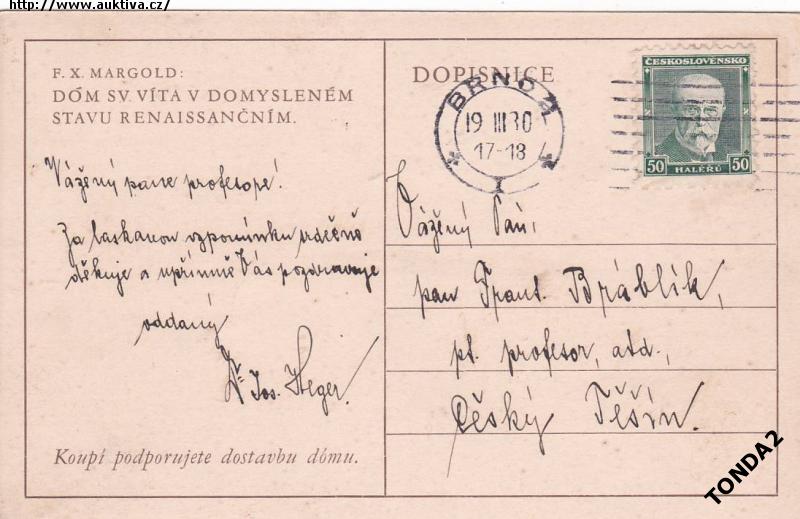 http://www.auktiva.cz/
F. X. MARGOLD:
DÓM SV. VÍTA V DOMYSLENÉM
STAVU RENAISSANČNÍM.
Vážený pane profesore!
Za laskavou vzpomínku srdečně
děkuje a upřímně Vás pozdravuje
oddaný
Dr Jos. Heger.
Koupí podporujete dostavbu dómu.
DOPISNICE
BRNO 2
19 III 30
17-18
1
ČESKOSLOVENSKO
50 50
HALÉŘŮ
Vážený Pán,
pan Frant. Bráblík,
pt. profesor, atd.,
Český Těšín.
TONDA2